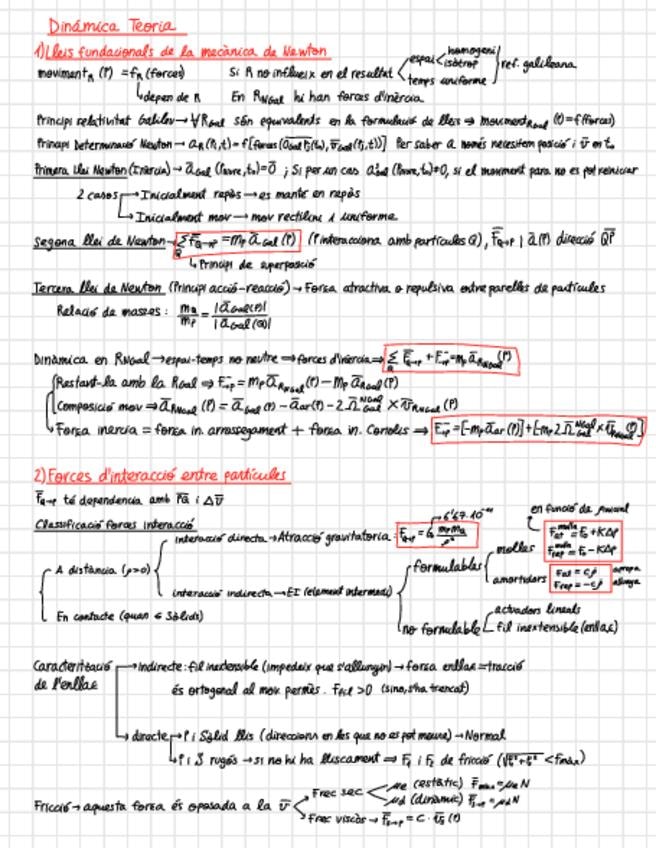 Dinámica Teoria
1) Lleis fundacionals de la mecànica de Newton
moviment_R (P) = f_R (forces)
depen de R
Si R no influeix en el resultat
espai homogeni isòtrop
temps uniforme
ref. galileana
En RNGal hi han forces d'inèrcia.
Principi relativitat Galileu → ∀RGal són equivalents en la formulació de lleis ⇒ moviment_RGal (t) = f(forces)
Principi Determinació Newton → a_R(P,t) = f[forces(
Per saber a només necessitem posició i v en t₀
Primera llei Newton (Inèrcia) → a_Gal (P lliure, t₀) = 0 ; Si per un cas a_Gal (P lliure, t₀) = 0, si el moviment para no es pot reiniciar
2 casos → Inicialment repòs → es manté en repòs
→ Inicialment mov → mov rectilini i uniforme.
Segona llei de Newton → Σ F_Q→P = m_P a_Gal (P) (P interacciona amb partícules Q), F_Q→P | a(P) direcció QP
Principi de superposició
Tercera llei de Newton (Principi acció-reacció) → Forsa atractiva o repulsiva entre parelles de partícules
Relació de masses: m_Q/m_P = |a_Gal(P)|/|a_Gal(Q)|
Dinàmica en RNGal → espai-temps no neutre ⇒ forces d'inèrcia ⇒ Σ F_Q→P + F_→P = m_P a_RNGal (P)
Restant-la amb la RGal ⇒ F_→P = m_P a_RNGal (P) - m_P a_RGal (P)
Composició mov ⇒ a_RNGal (P) = a_Gal (P) - a_ar (P) - 2 Ω^NGal_Gal × v_RNGal (P)
Forsa inercia = forsa in. arrossegament + forsa in. Coriolis ⇒ F_→P = [-m_P a_ar (P)] + [-m_P 2 Ω^NGal_Gal × v_RNGal (P)]
2) Forces d'interacció entre partícules
F_Q→P té dependencia amb PQ i Δv
Classificació forces interacció
A distància (ρ>0)
interacció directa → Atracció gravitatoria: F_Q→P = G m_P m_Q/ρ²
6'67·10⁻¹¹
interacció indirecta → EI (element intermedi)
formulables
molles
en funció de ρ inicial
F_at^molla = F₀ + KΔρ
F_rep^molla = F₀ - KΔρ
amortidors
F_at = cρ̇
F_rep = -cρ̇
apropa
allunya
no formulables
actuadors lineals
fil inextensible (enllaç)
En contacte (quan ∈ Sòlids)
Caracterització de l'enllaç
Indirecte: fil inextensible (impedeix que s'allunyin) → forsa enllaç = tracció
és ortogonal al mov permès. F_fil > 0 (sino, s'ha trencat)
directe → P i Sòlid llis (direccions en les que no es pot moure) → Normal
P i S rugós → si no hi ha lliscament ⇒ F₁ i F₂ de fricció (√F₁²+F₂² < F màx)
Fricció → aquesta forsa és oposada a la v
Frec sec
μe (estàtic) F màx = μe N
μd (dinàmic) F_S→P = μd N
Frec viscós → F_S→P = C · v_S (P)